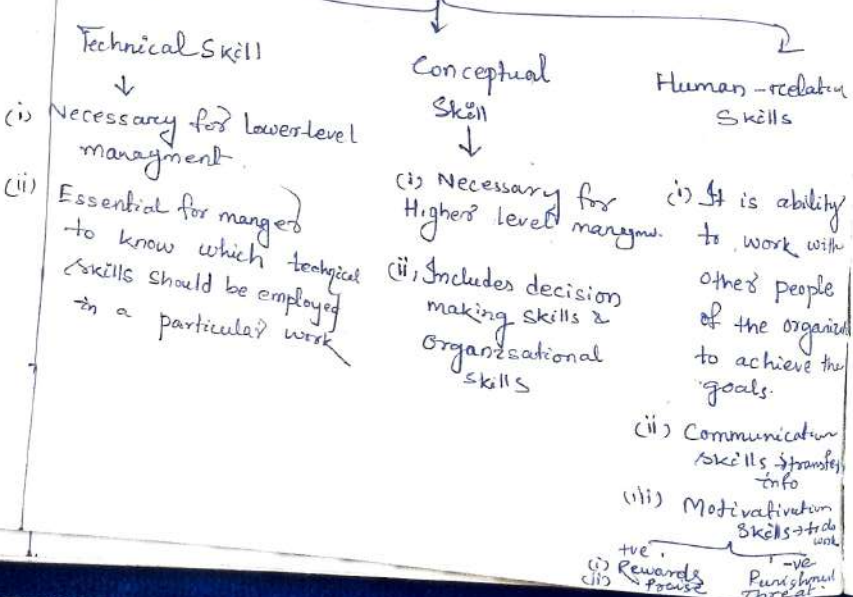 Technical Skill
(i) Necessary for Lower-level
managment.
(ii) Essential for manger
to know which technical
skills should be employed
in a particular work
Conceptual
Skill
(i) Necessary for
Higher level managm.
(ii) Includes decision
making skills &
organisational
skills
Human-relation
Skills
(i) It is ability
to work with
other people
of the organiza
to achieve the
goals.
(ii) Communication
skills → transfer
info
(iii) Motivativation
Skills → to do
work
+ve
(i) Rewards
(ii) Praise
-ve
Punishment
Threat.